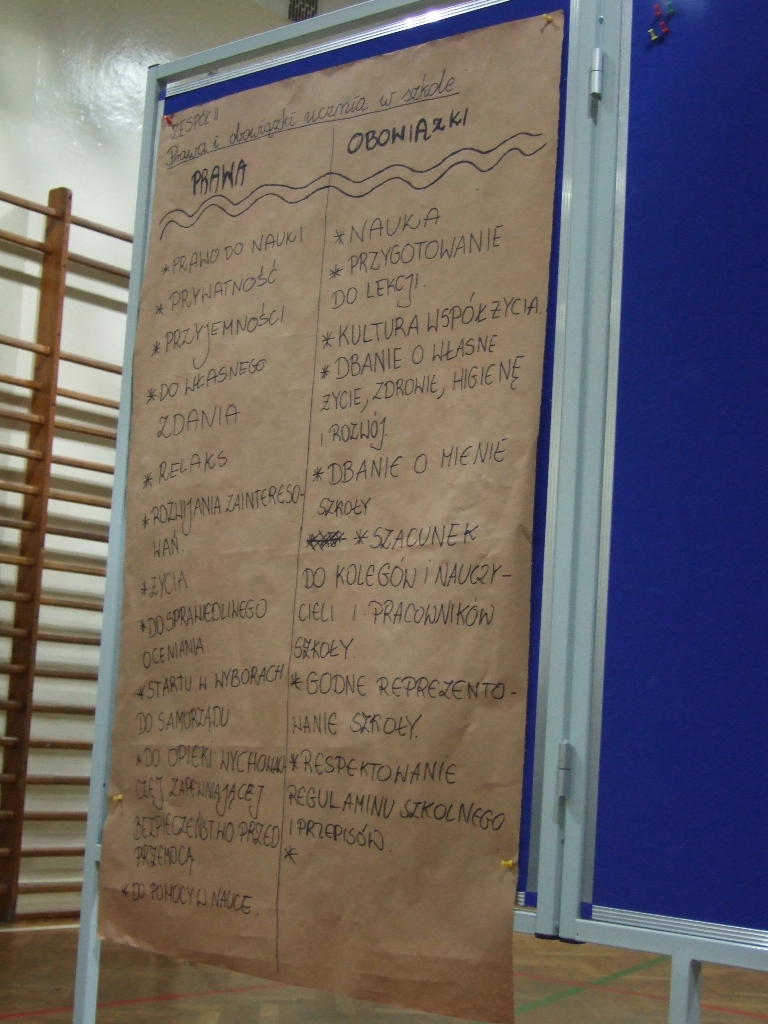 ZESPÓŁ II
Prawa i obowiązki ucznia w szkole
PRAWA
* PRAWO DO NAUKI
* PRYWATNOŚĆ
* PRZYJEMNOŚCI
* DO WŁASNEGO
ZDANIA
* RELAKS
* ROZWIJANIA ZAINTERESO-
WAŃ.
* ŻYCIA
* DO SPRAWIEDLIWEGO
OCENIANIA
* STARTU W WYBORACH
DO SAMORZĄDU
* DO OPIEKI WYCHOWAW
CZEJ ZAPEWNIAJĄCEJ
BEZPIECZEŃSTWO PRZED
PRZEMOCĄ
* DO POMOCY W NAUCE.
OBOWIĄZKI
* NAUKA
* PRZYGOTOWANIE
DO LEKCJI.
* KULTURA WSPÓŁŻYCIA.
* DBANIE O WŁASNE
ŻYCIE, ZDROWIE, HIGIENĘ
I ROZWÓJ.
* DBANIE O MIENIE
SZKOŁY
* SZACUNEK
DO KOLEGÓW i NAUCZY-
CIELI I PRACOWNIKÓW
SZKOŁY.
* GODNE REPREZENTO-
WANIE SZKOŁY.
* RESPEKTOWANIE
REGULAMINU SZKOLNEGO
I PRZEPISÓW.
*